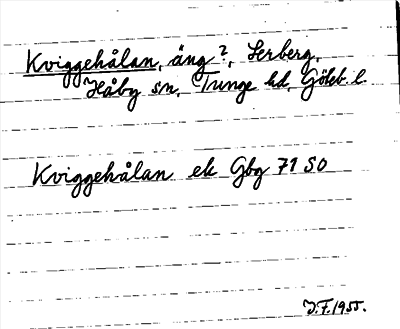 Kviggehålan, äng?, Lerberg,
Håby sn, Tunge hd, Göteb. l.
Kviggehålan ek Gbg 71 SO
J.F. 1955.